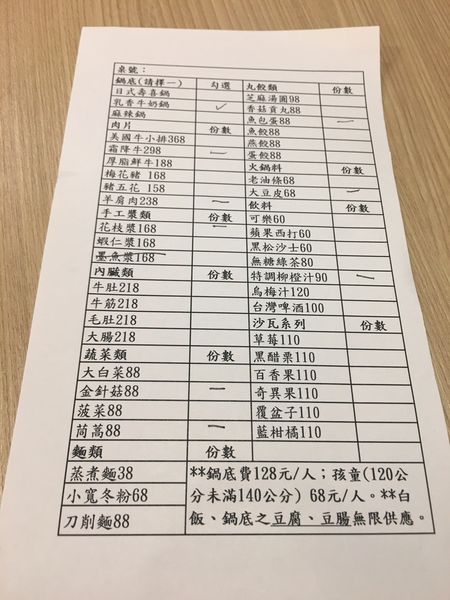 桌號：
鍋底(請擇一) 勾選 丸餃類 份數
日式壽喜鍋 芝麻湯圓98
乳香牛奶鍋 ✓ 香菇貢丸88
麻辣鍋 魚包蛋88 一
肉片 份數 魚餃88
美國牛小排368 燕餃88
霜降牛298 一 蛋餃88
厚脂鮮牛188 火鍋料 份數
梅花豬 168 老油條68
豬五花 158 大豆皮68 一
羊肩肉238 一 飲料 份數
手工漿類 份數 可樂60
花枝漿168 一 蘋果西打60
蝦仁漿168 黑松沙士60
墨魚漿168 無糖綠茶80
內臟類 份數 特調柳橙汁90 一
牛肚218 烏梅汁120
牛筋218 台灣啤酒100
毛肚218 沙瓦系列 份數
大腸218 草莓110
蔬菜類 份數 黑醋栗110
大白菜88 百香果110
金針菇88 一 奇異果110
菠菜88 覆盆子110
茼萵88 一 藍柑橘110
麵類 份數
蒸煮麵38 **鍋底費128元/人；孩童(120公
小寬冬粉68 分未滿140公分) 68元/人。**白
刀削麵88 飯、鍋底之豆腐、豆腸無限供應。